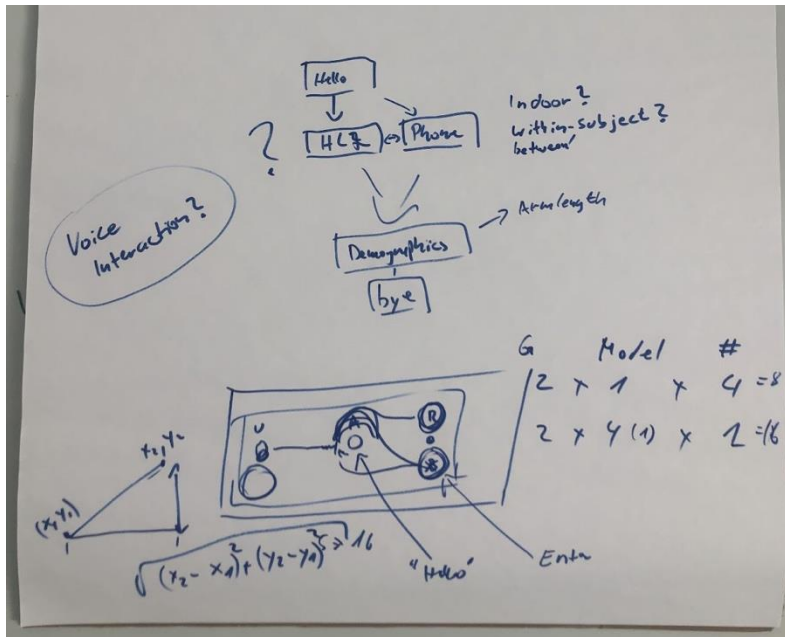 Hello
?
Phone
Indoor?
within-subject?
between
Voice
Interaction?
Demographics
Armlength
bye
G Model #
2 x 1 x 4 =8
2 x 4(1) x 2 =16
x₂, y₂
(x₁, y₁)
U
R
√(x₂ - x₁)² + (y₂ - y₁)²
16
"Hello"
Enter